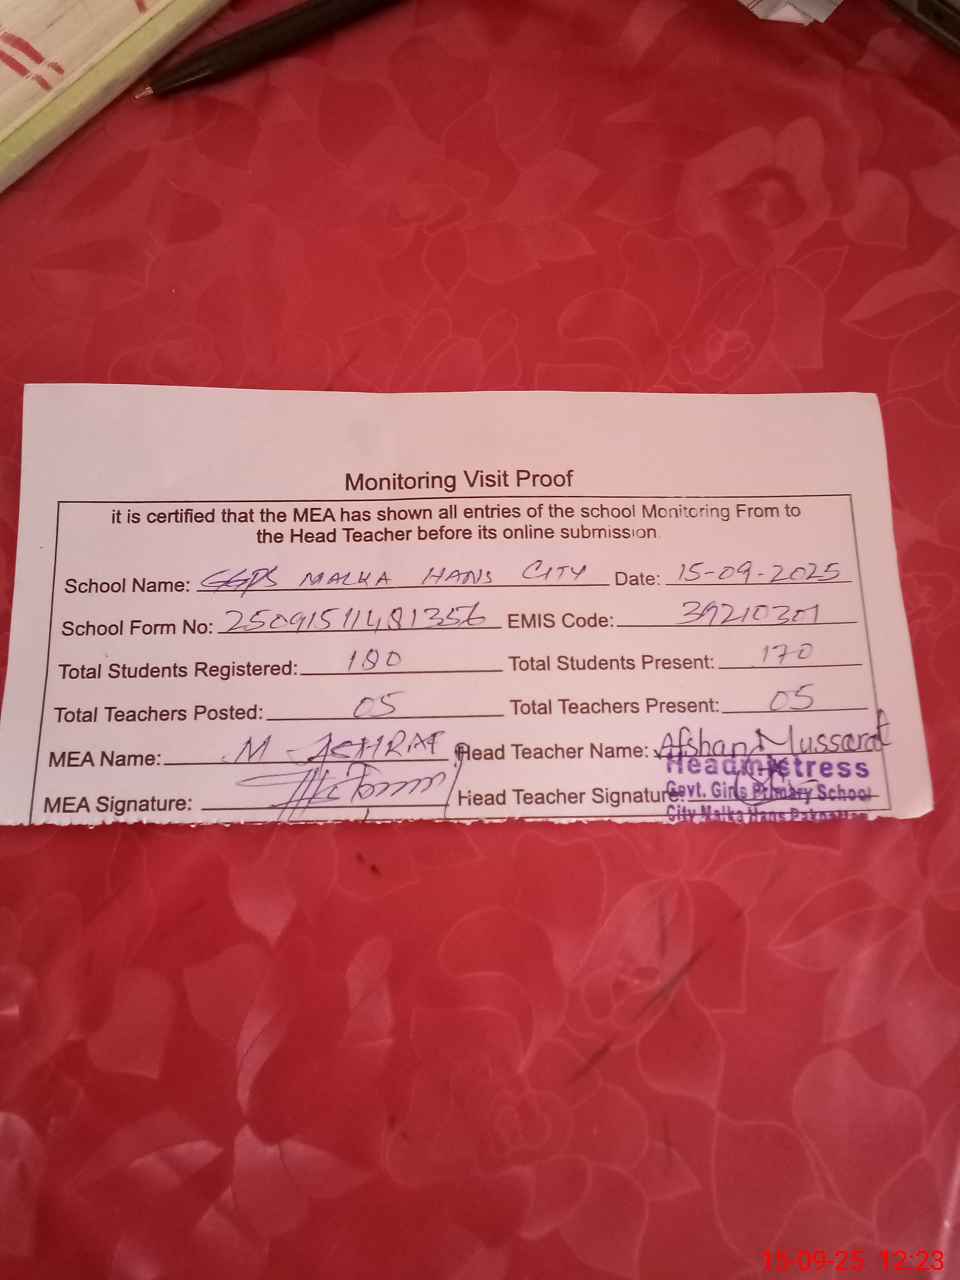 Monitoring Visit Proof
it is certified that the MEA has shown all entries of the school Monitoring From to
the Head Teacher before its online submission.
School Name: GGPS MALKA HANS CITY Date: 15-09-2025
School Form No: 25091511481356 EMIS Code: 39210301
Total Students Registered: 180 Total Students Present: 170
Total Teachers Posted: 05 Total Teachers Present: 05
MEA Name: M ASHRAF Head Teacher Name: Afshan Mussarat
Headmistress
MEA Signature: Head Teacher Signature:
Govt. Girls Primary School
City Malka Hans Pakpattan
15-09-25 12:23